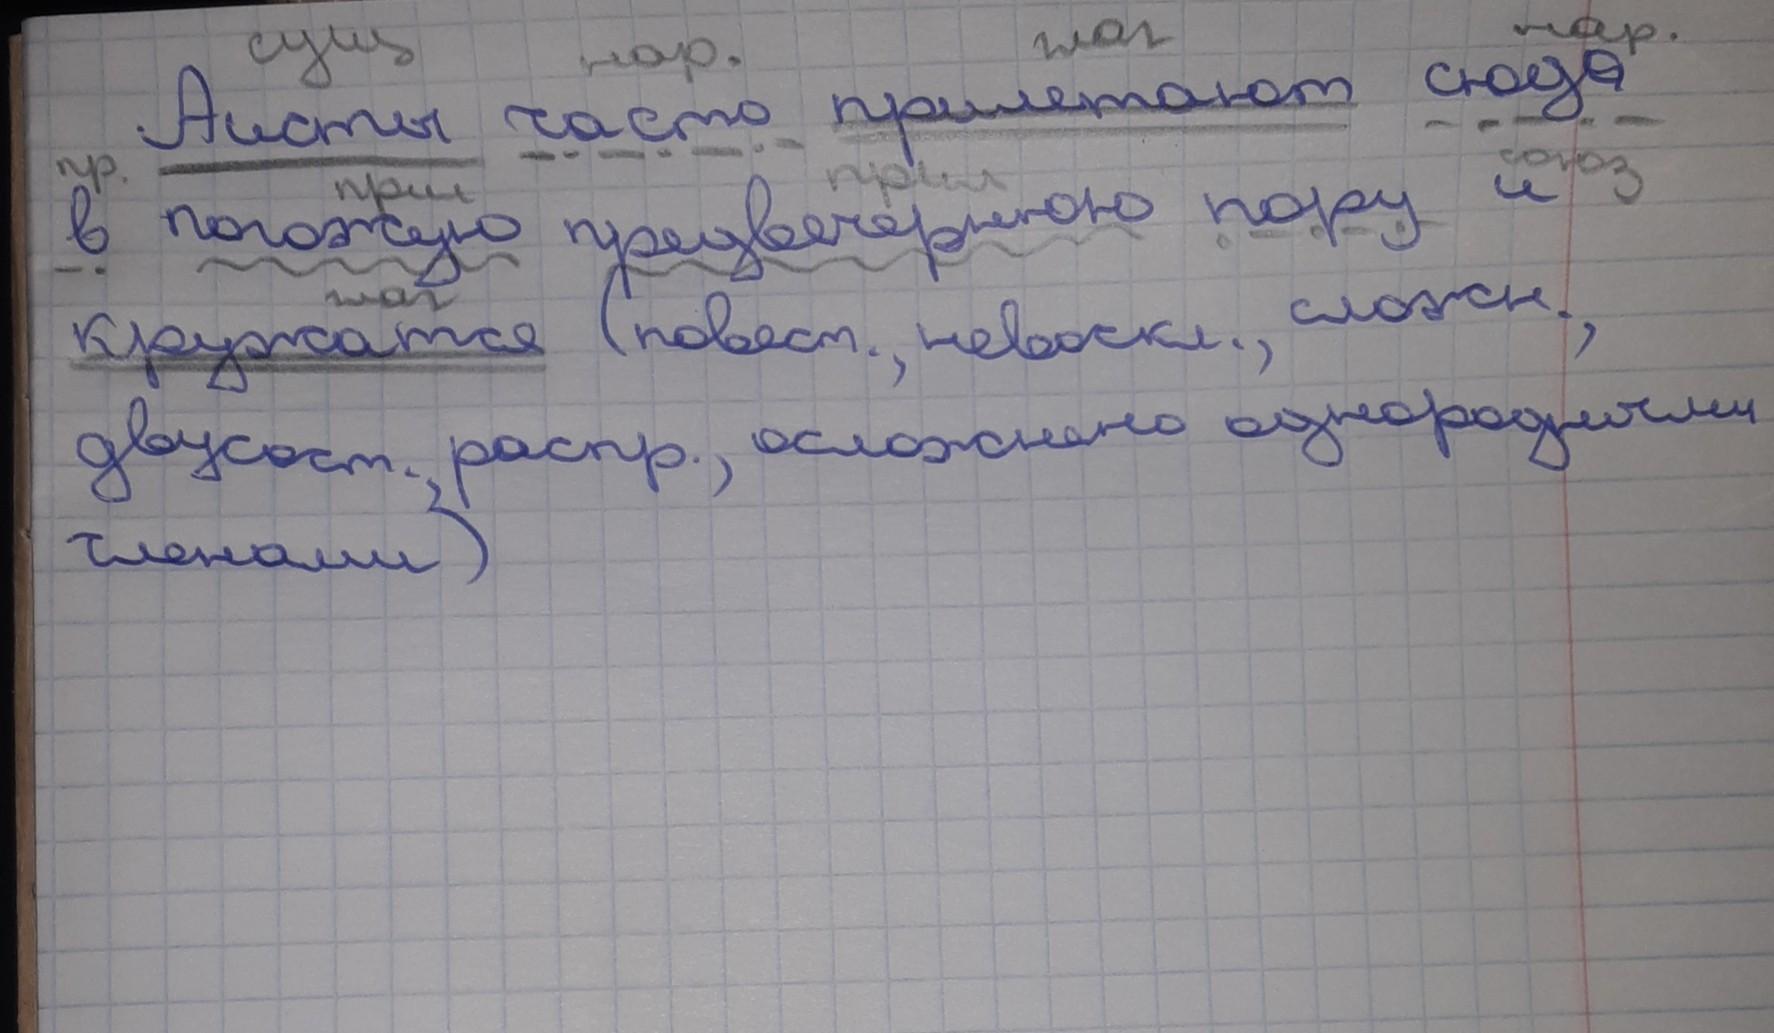 сущ нар. глаг нар.
Аисты часто прилетают сюда
пр. прил прил союз
в погожую предвечернюю пору и
глаг
кружатся (повест., невоскл., сложн.,
двусост., распр., осложнено однородными
членами)